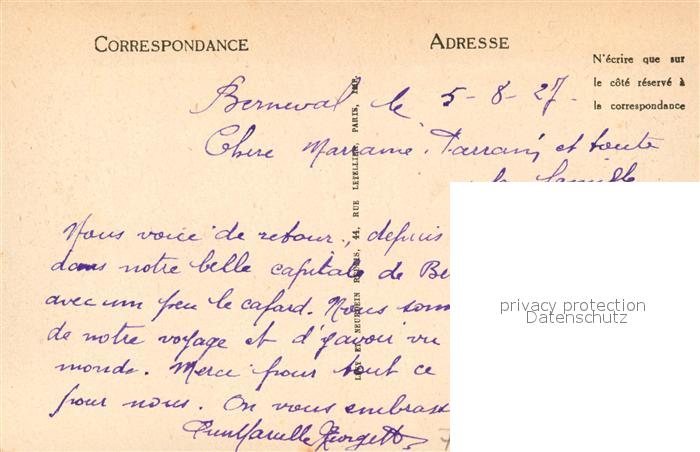 CORRESPONDANCE
ADRESSE
N'écrire que sur
le côté réservé à
la correspondance
Berneval le 5-8-27-
Chere Marraine, Parrain, et toute
la famille
Nous voice de retour, depuis
dans notre belle capitale de Be
avec un peu le cafard. Nous som
de notre voyage et d'y avoir vu
monde. Merci pour tout ce
pour nous. On vous embrass
Marcelle Georgette
LÉVY ET NEURDEIN RÉUNIS, 44, RUE LETELLIER, PARIS, IMP.
privacy protection
Datenschutz